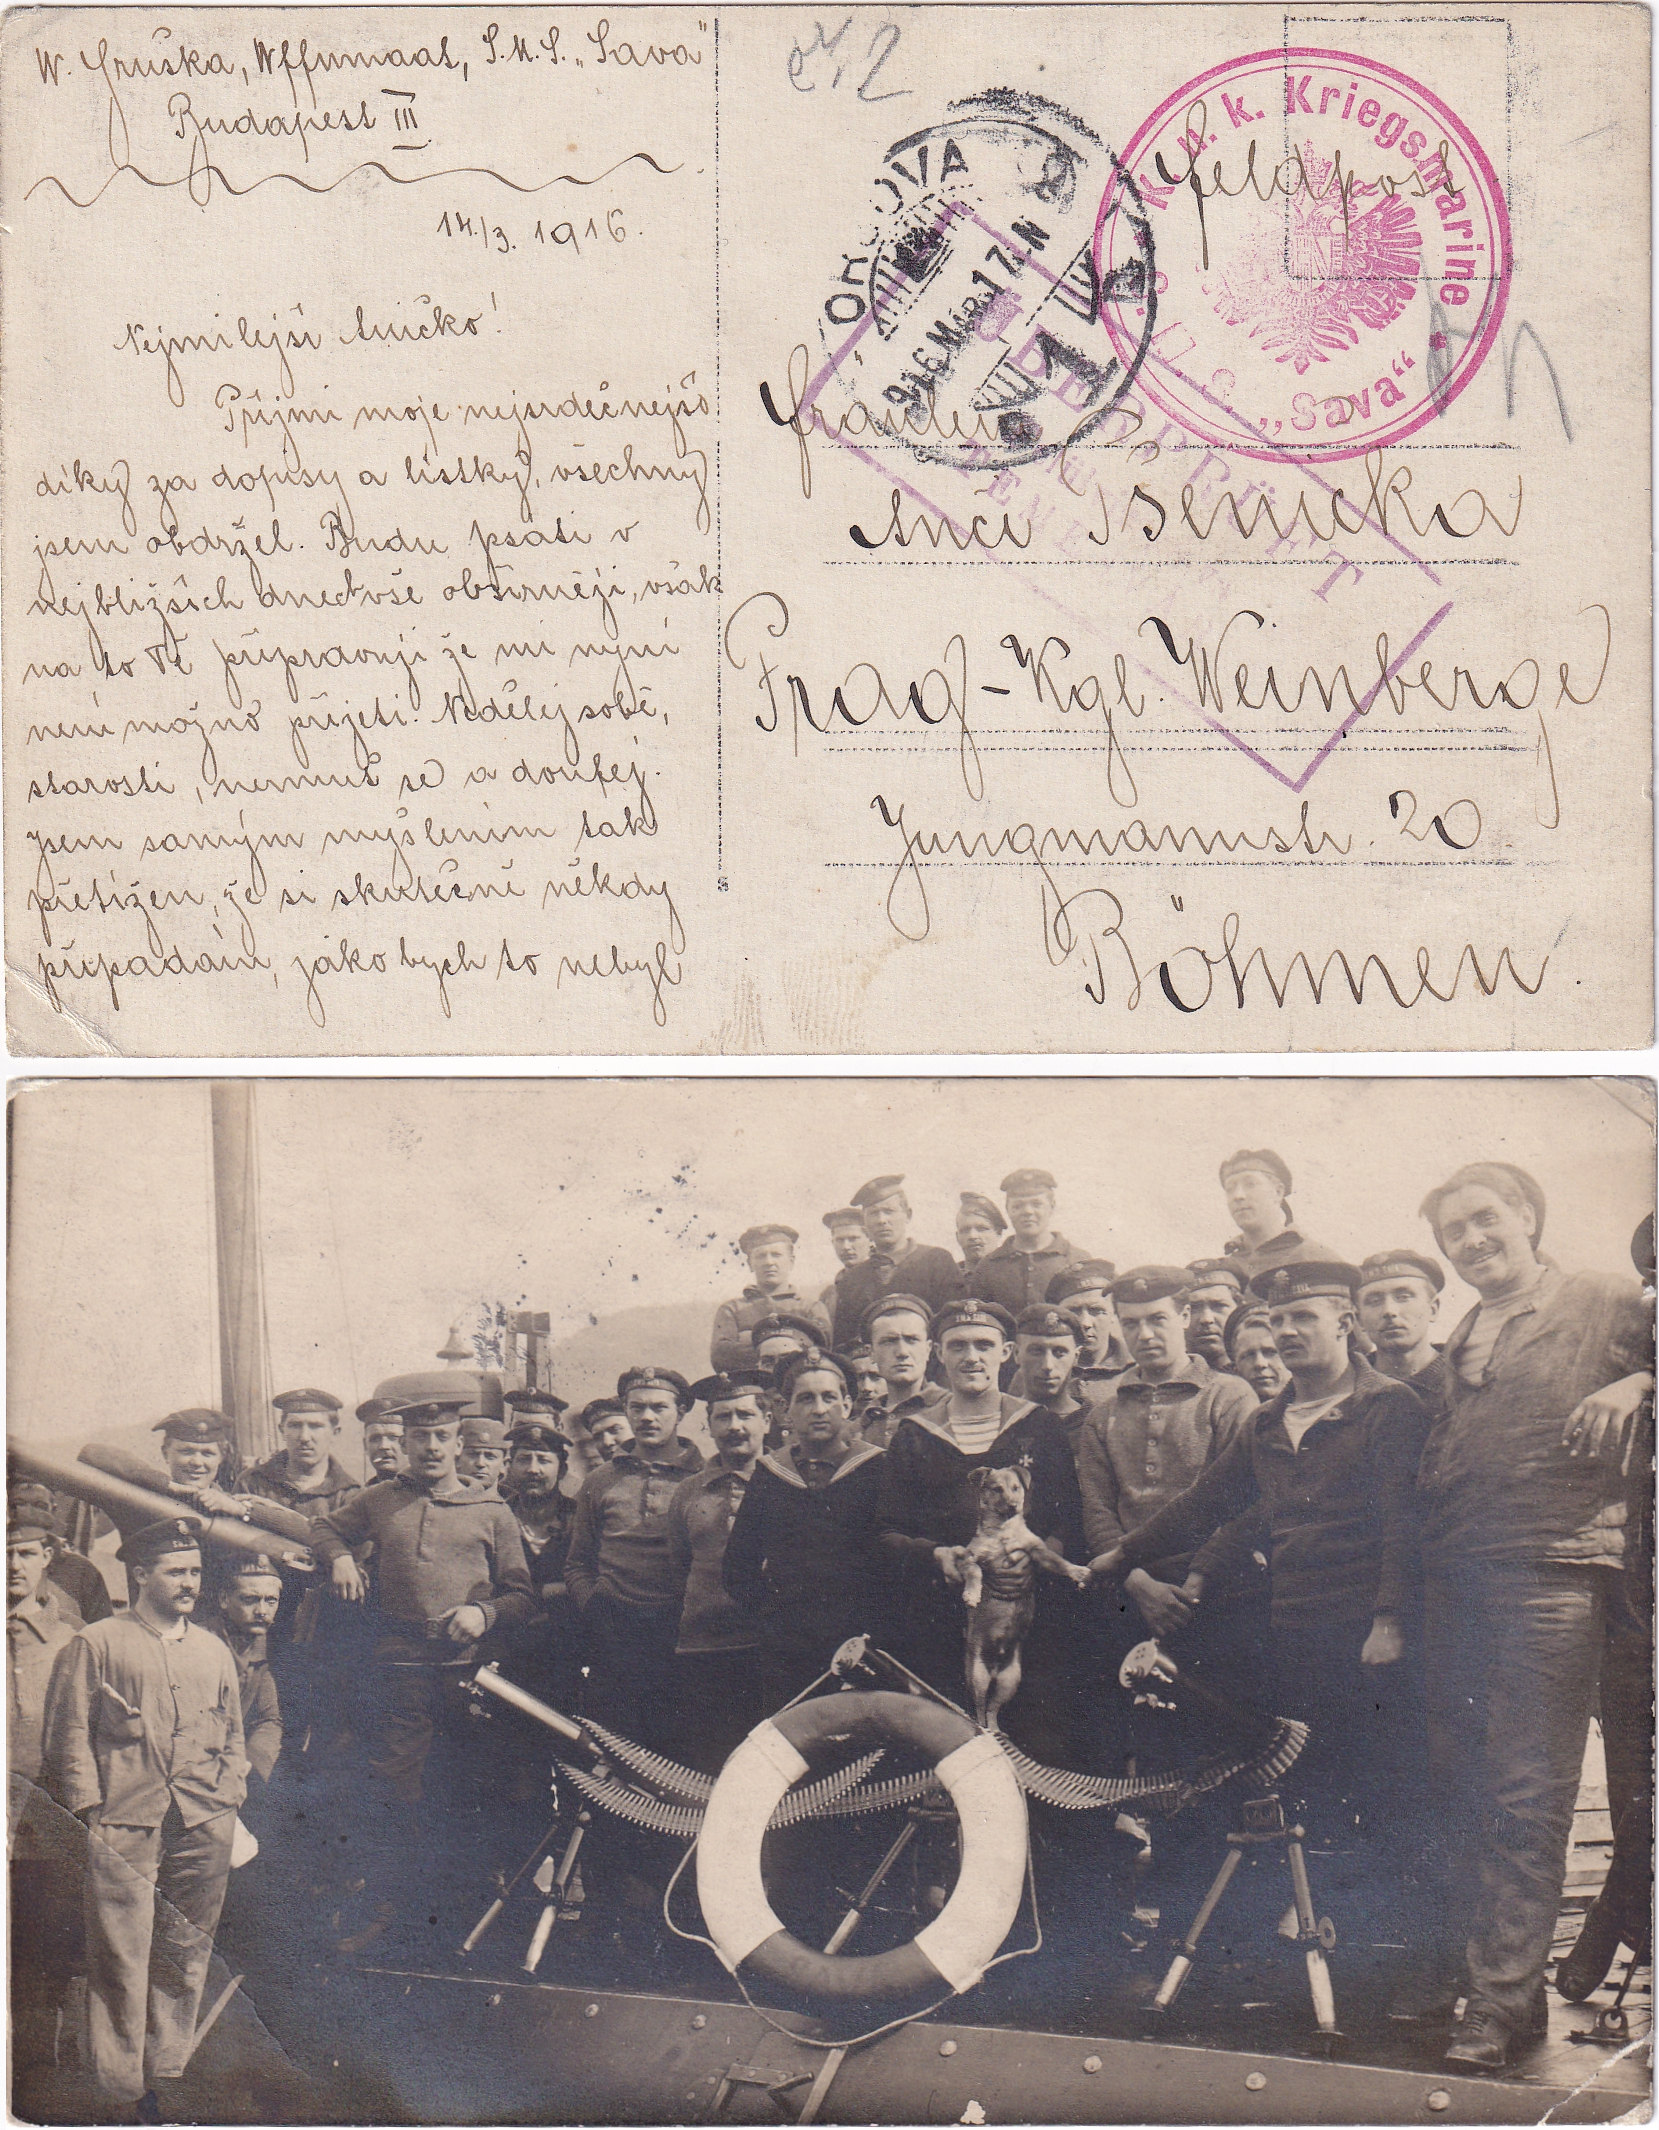 W. Gruška, Wffnmaat, S.M.S. „Sava"
Budapest III
14./3. 1916.
Nejmilejší Aničko!
Přijmi moje nejsrdečnejšo
díky za dopisy a lístky, všechny
jsem obdržel. Budu psáti v
nejbližších dnech vše obšírněji, však
na to Tě připravuji že mi nyní
není možno přijeti. Nedělej sobě,
starosti, nermuť se a doufej.
Jsem samým myšlením tak
přetížen, že si skutečně někdy
připadám, jako bych to nebyl
K. u. k. Kriegsmarine
S. M. S. „Sava"
Feldpost
ORSOVA
916 MAR 17 N
1
ÜBERPRÜFT
Fräulein
Anči Pšenička
Prag-Kgl. Weinberge
Jungmannstr. 20
Böhmen.